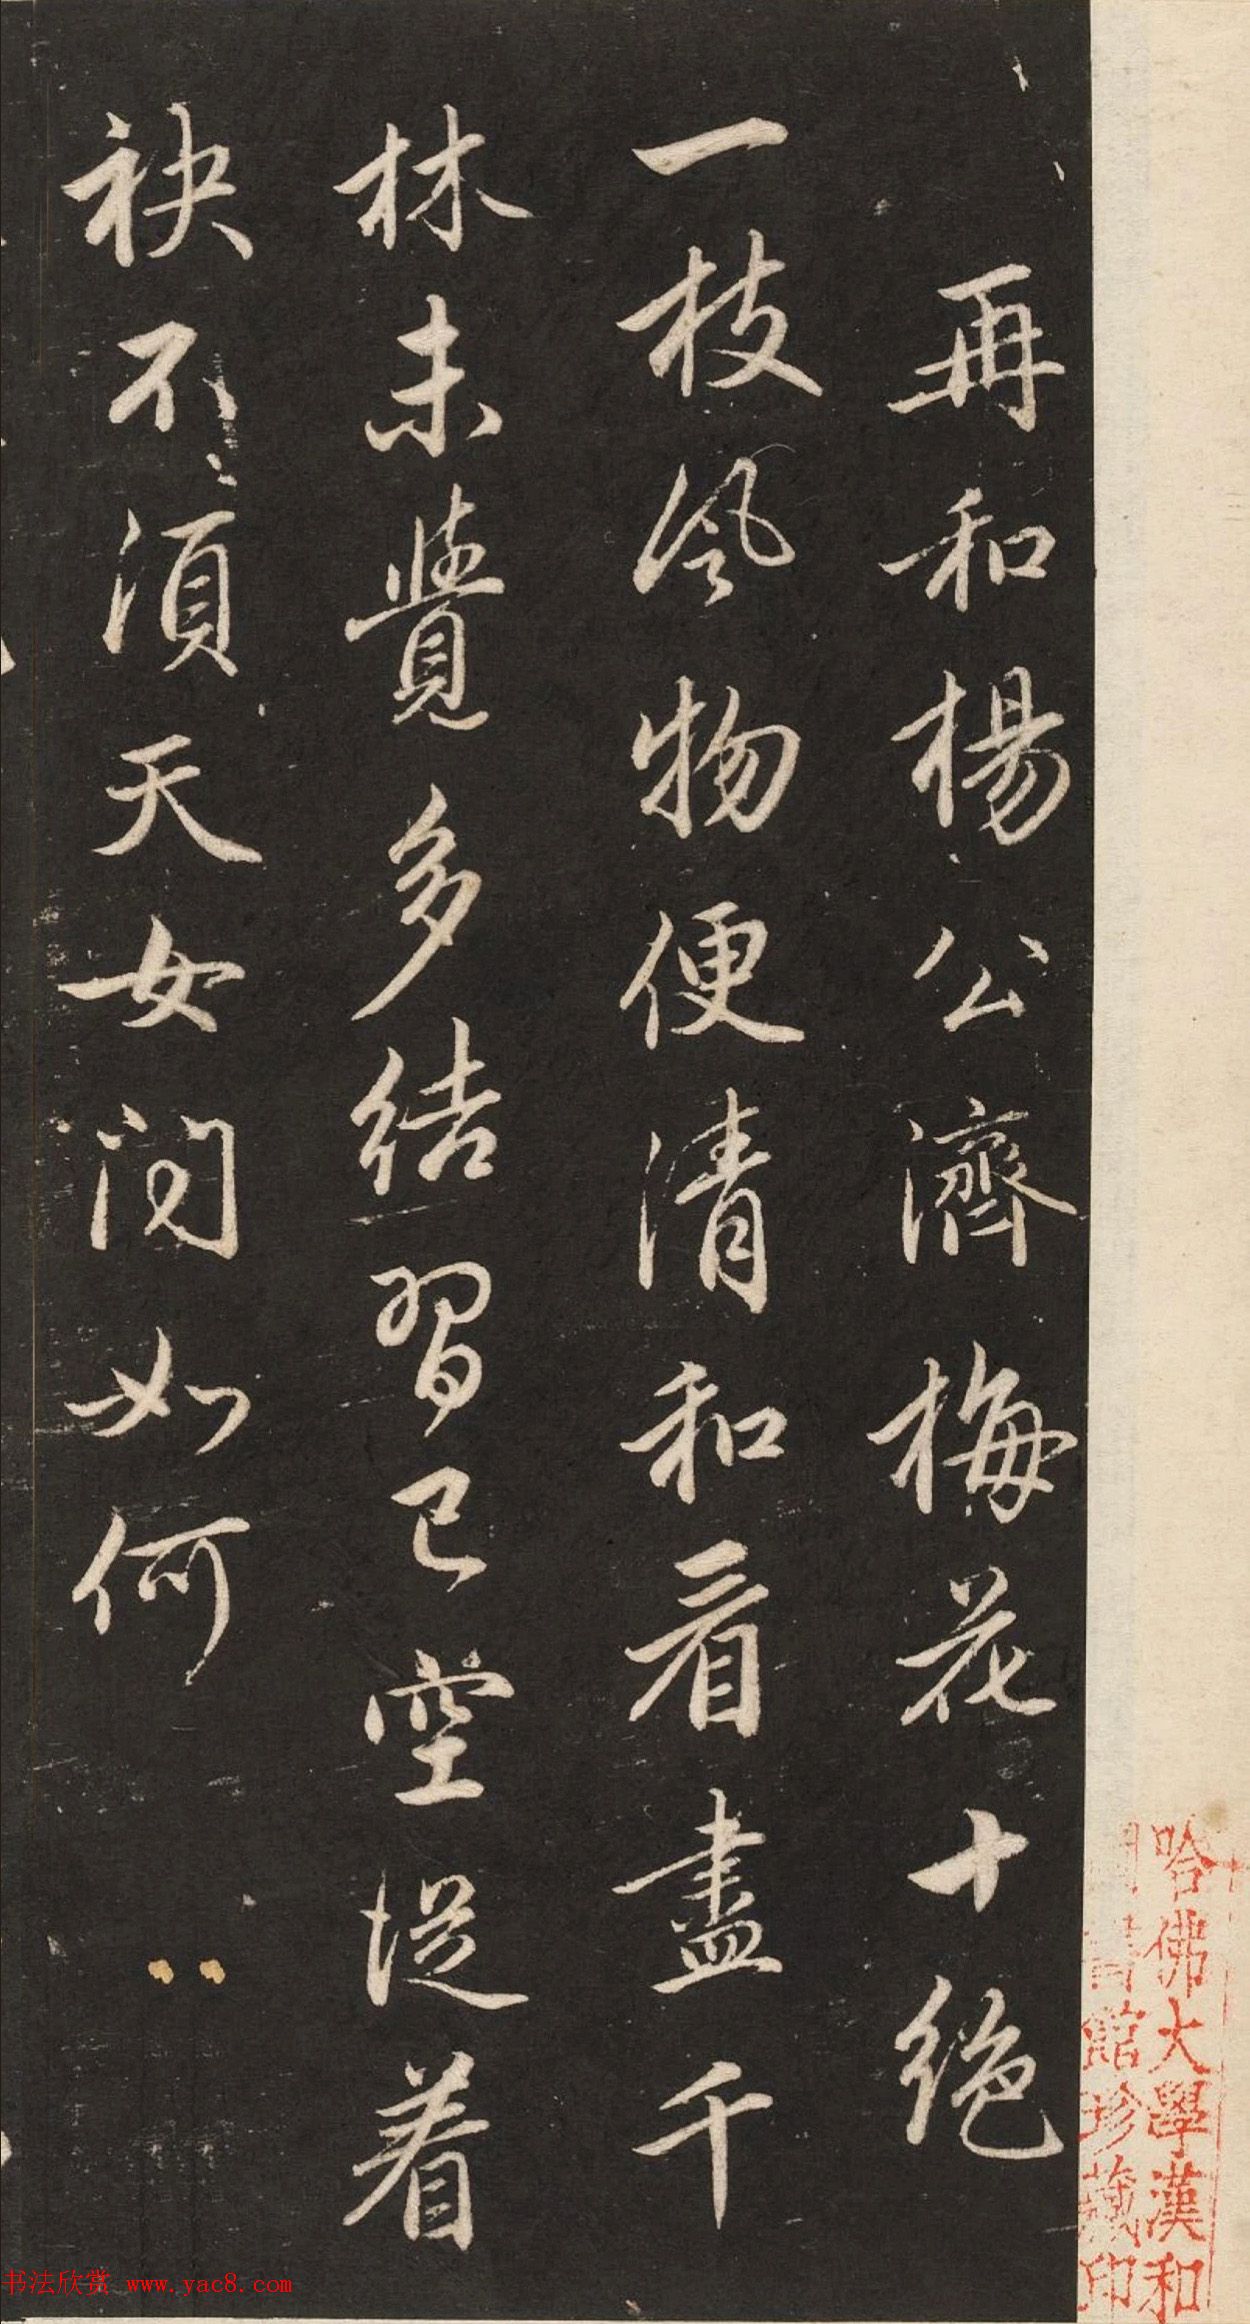 再和楊公濟梅花十絶
一枝風物便清和看盡千
林未覺多結習已空從着
袂不須天女問如何
哈佛大學漢和
圖書館珍藏印
书法欣赏 www.yac8.com